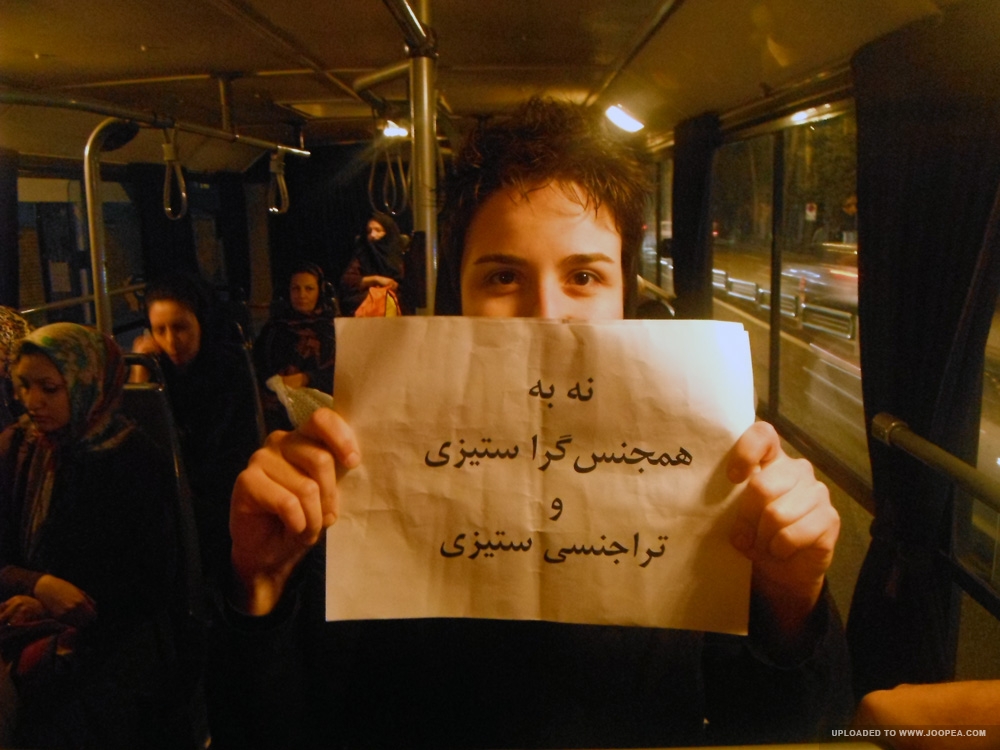 نه به
همجنس‌گرا ستیزی
و
تراجنسی ستیزی
UPLOADED TO WWW.JOOPEA.COM